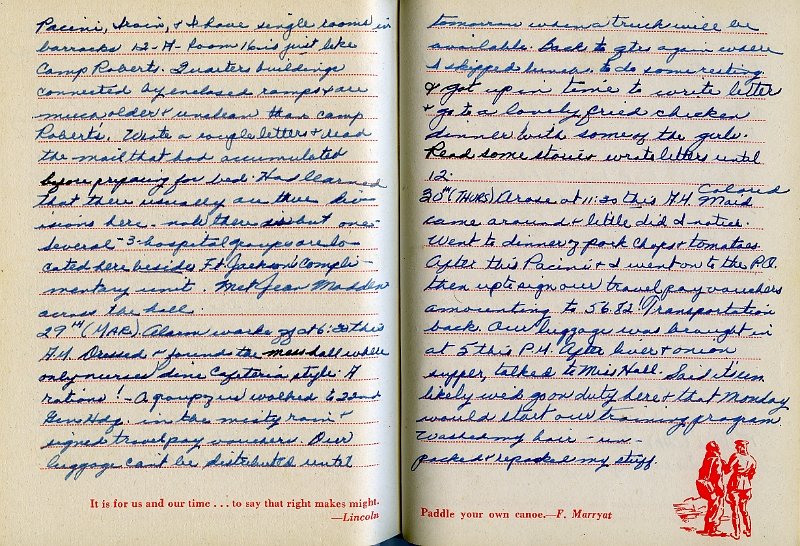 Pacini, Irois, + I have single rooms in
barracks 12-A- Room 16 is just like
Camp Roberts. Quarters buildings
connected by enclosed ramps + are
much older + unclean than Camp
Roberts. Wrote a couple letters + read
the mail that had accumulated
before preparing for bed. Had learned
that there usually are three div-
isions here - now there is but one-
several -3- hospital groups are lo-
cated here besides Ft. Jackson's compli-
mentary unit. Met Jean Madden
across the hall.
29th (MAR). Alarm works of at 6:30 this
A.M. Dressed + found the mess hall where
only nurses dine cafeteria style. A
rations! - A group of us walked to 22nd
Gen Hdq. in the misty rain +
signed travel pay vouchers. Our
luggage can't be distributed until
It is for us and our time . . . to say that right makes might.
—Lincoln
tomorrow when a truck will be
available. Back to qtrs again where
I skipped lunch to do some resting
+ got up in time to write letter
+ go to a lovely fried chicken
dinner with some of the girls.
Read some stories + wrote letters until
12.
30th (THURS) Arose at 11:30 this A.M. Colored Maid
came around + little did I notice.
Went to dinner of pork chops + tomatoes.
After this Pacini + I went on to the P.O.
then up to sign our travel pay vouchers
amounting to 56.82! Transportation
back. Our luggage was brought in
at 5 this P.M. After liver + onion
supper, talked to Miss Hall. Said it's un-
likely we'd go on duty here + that Monday
would start our training program
Washed my hair - un-
packed + repacked my stuff.
Paddle your own canoe.—F. Marryat